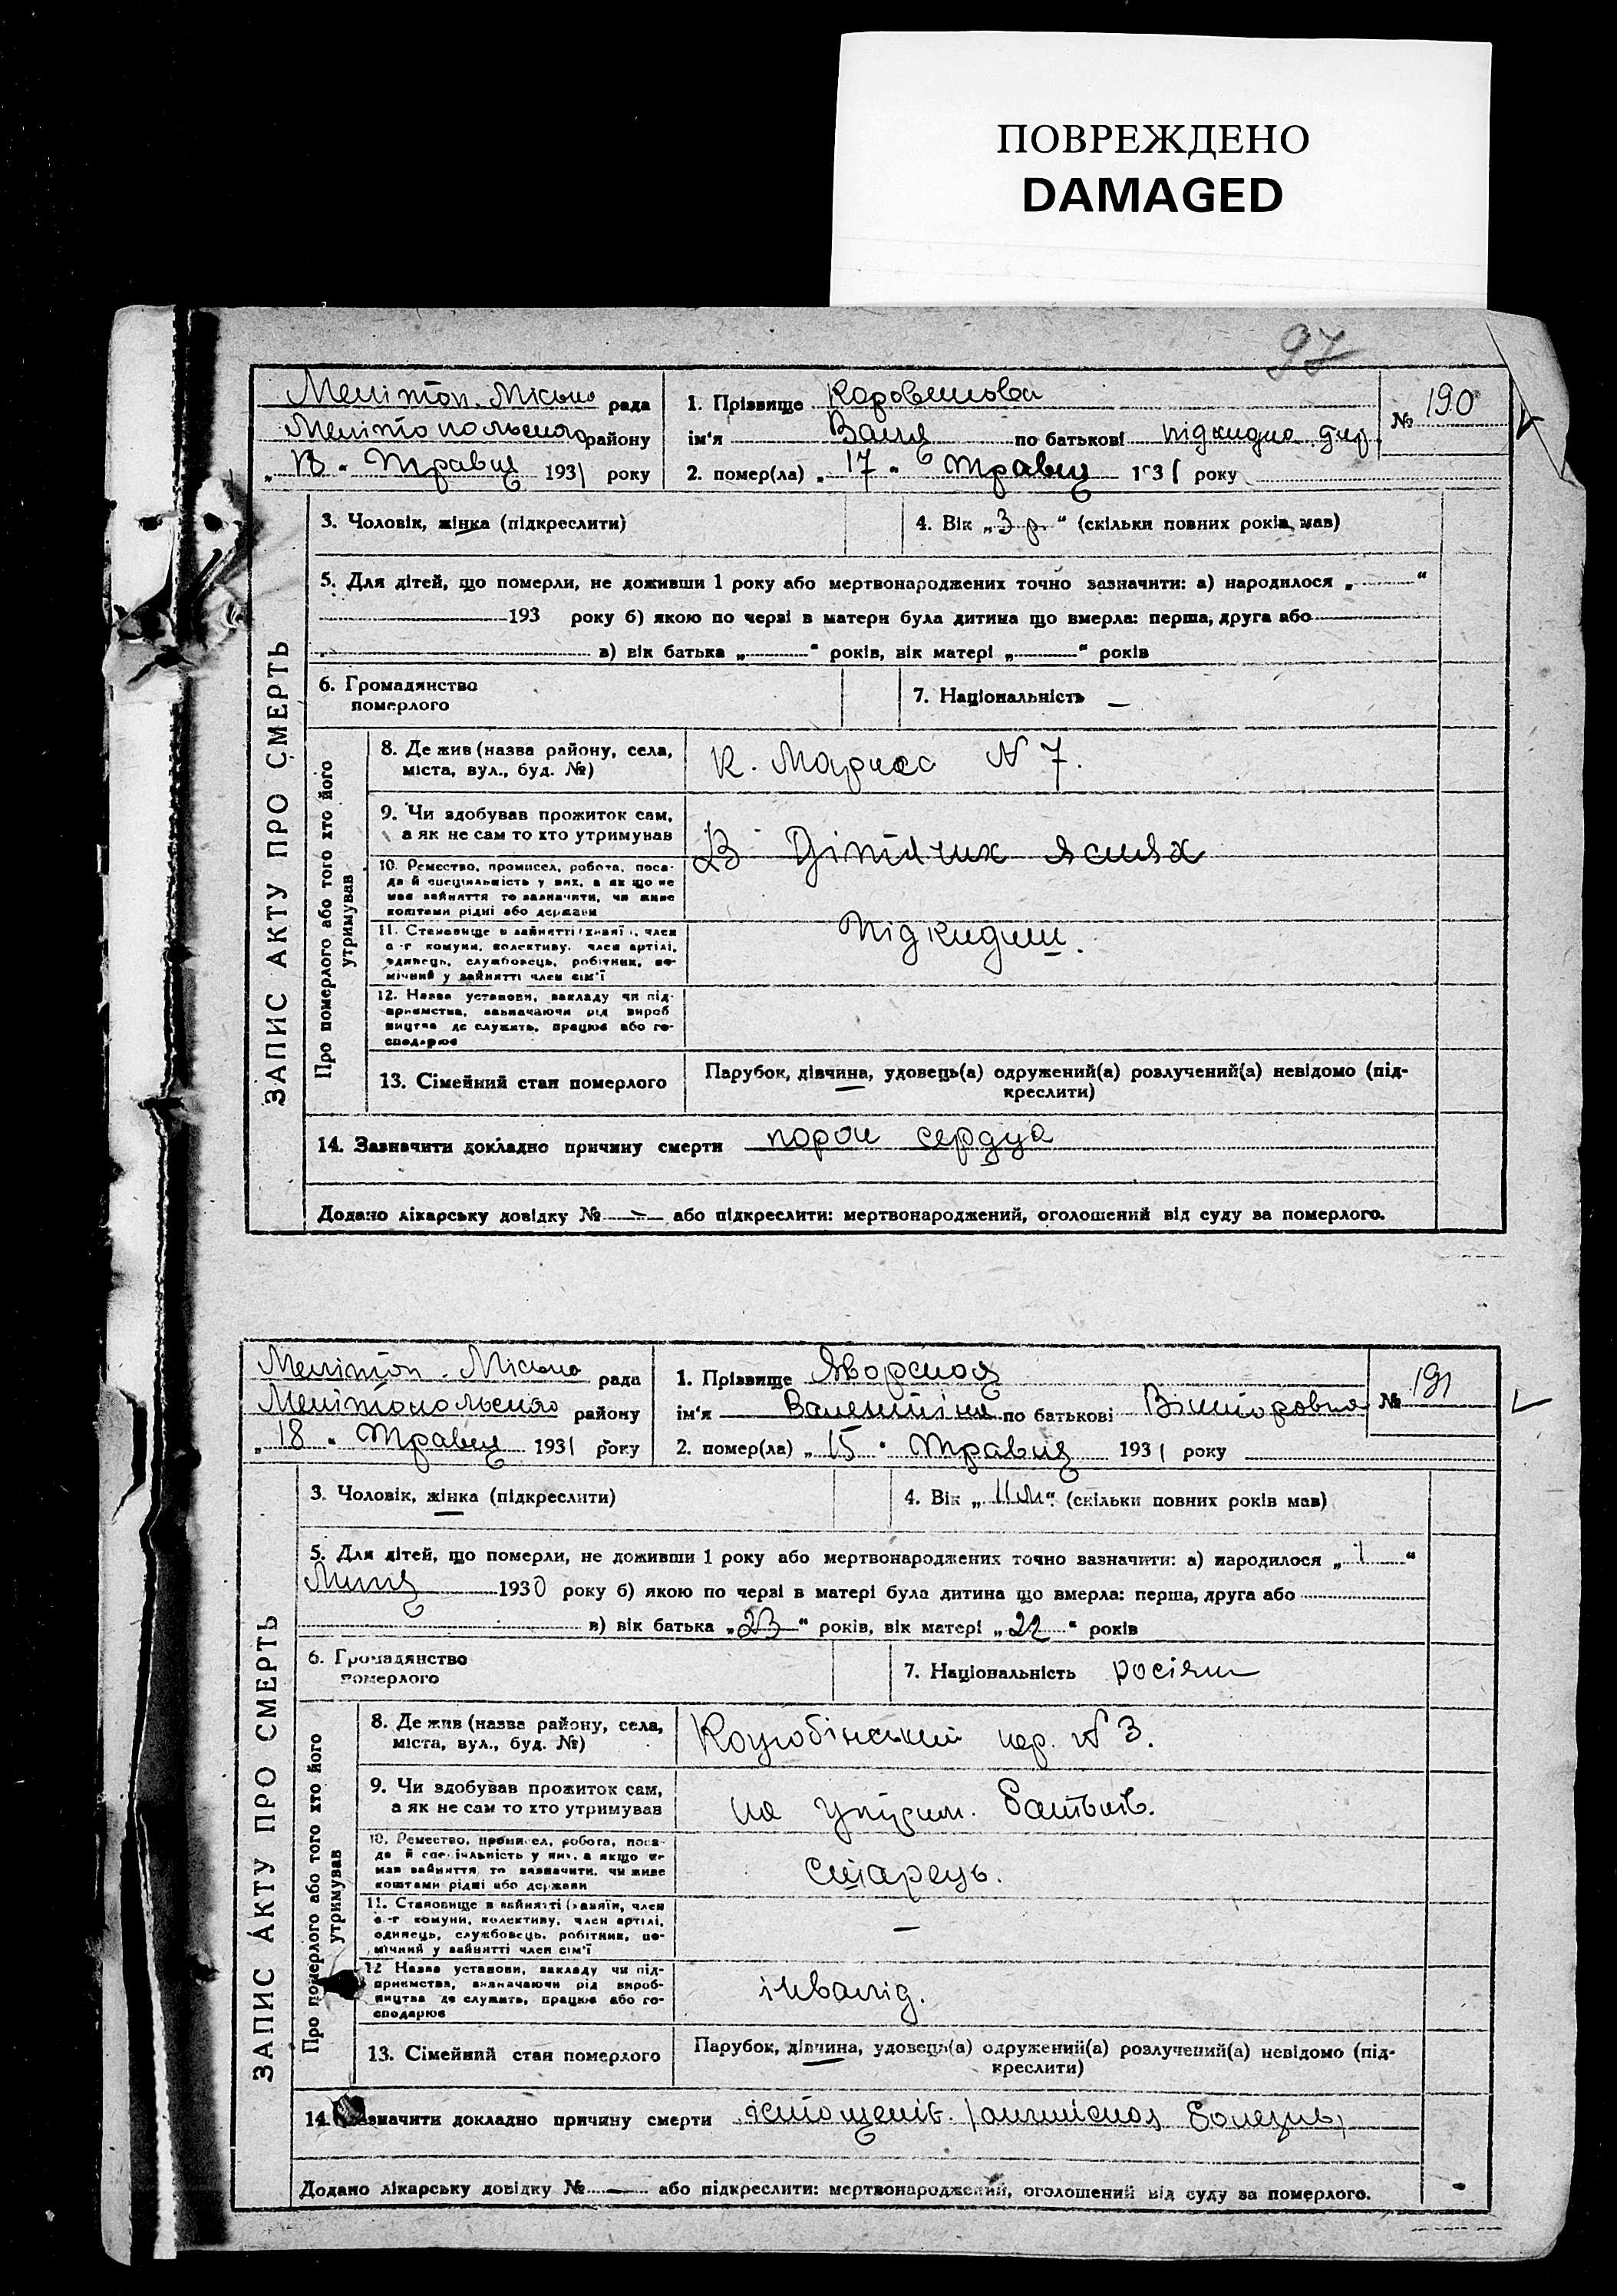 ПОВРЕЖДЕНО
DAMAGED
97
Мелітоп. Місько рада
Мелітопольского району
„ 18 “ Травня 1931 року
1. Прізвище
ім‘я Валя по батькові підкидна дит.
2. помер(ла) „ 17 “ Травня 1931 року
№ 190
ЗАПИС АКТУ ПРО СМЕРТЬ
3. Чоловік, жінка (підкреслити)
4. Вік „ 3 р “ (скільки повних років мав)
5. Для дітей, що померли, не доживши 1 року або мертвонароджених точно зазначити: а) народилося „ “
193 року б) якою по черзі в матери була дитина що вмерла: перша, друга або
в) вік батька „ “ років, вік матері „ “ років
6. Громадянство
померлого
7. Національність —
Про померлого або того хто його
утримував
8. Де жив (назва району, села,
міста, вул., буд. №)
К. Маркса N 7.
9. Чи здобував прожиток сам,
а як не сам то хто утримував
В Дітячих яслях
10. Ремество, промисел, робота, поса-
да й спеціяльність у них, а як що не
мав зайняття то зазначити, чи живе
коштами рідні або держави
11. Становище в зайнятті (хазяїн, член
с.-г комуни, колективу, член артілі,
одинець, службовець, робітник, по-
мічний у зайнятті член сім‘ї
підкидиш.
12. Назва установи, закладу чи під-
приємства, зазначаючи рід вироб
ництва де служить, працює або го-
сподарює
13. Сімейний стан померлого
Парубок, дівчина, удовець(а) одружений(а) розлучений(а) невідомо (під-
креслити)
14. Зазначити докладно причину смерти порок сердца
Додано лікарську довідку № — або підкреслити: мертвонароджений, оголошений від суду за померлого.
Мелітоп. Місько рада
Мелітопольского району
„ 18 “ Травня 1931 року
1. Прізвище Яворская
ім‘я Валентіна по батькові Вікторовна
2. помер(ла) „ 15 “ Травня 1931 року
№ 191
ЗАПИС АКТУ ПРО СМЕРТЬ
3. Чоловік, жінка (підкреслити)
4. Вік „ 11 м “ (скільки повних років мав)
5. Для дітей, що померли, не доживши 1 року або мертвонароджених точно зазначити: а) народилося „ 1 “
Липня 1930 року б) якою по черзі в матері була дитина що вмерла: перша, друга або
в) вік батька „ 23 “ років, вік матері „ 22 “ років
6. Громадянство
померлого
7. Національність росіян
Про померлого або того хто його
утримував
8. Де жив (назва району, села,
міста, вул., буд. №)
Коцюбінський пер. N 3.
9. Чи здобував прожиток сам,
а як не сам то хто утримував
на утрим. батьків.
10. Ремество, промисел, робота, поса-
да й спеціяльність у них, а якщо не
мав зайняття то зазначити, чи живе
коштами рідні або держави
11. Становище в зайнятті (хазяїн, член
с.-г комуни, колективу, член артілі,
одинець, службовець, робітник, по-
мічний у зайнятті член сім‘ї
—
12 Назва установи, закладу чи під-
приємства, зазначаючи рід вироб-
ництва де служить, працює або го-
сподарює
інвалід.
13. Сімейний стан померлого
Парубок, дівчина, удовець(а) одружений(а) розлучений(а) невідомо (під-
креслити)
14. Зазначити докладно причину смерти істощеніє /англіская болезнь/
Додано лікарську довідку № — або підкреслити: мертвонароджений, оголошений від суду за померлого.